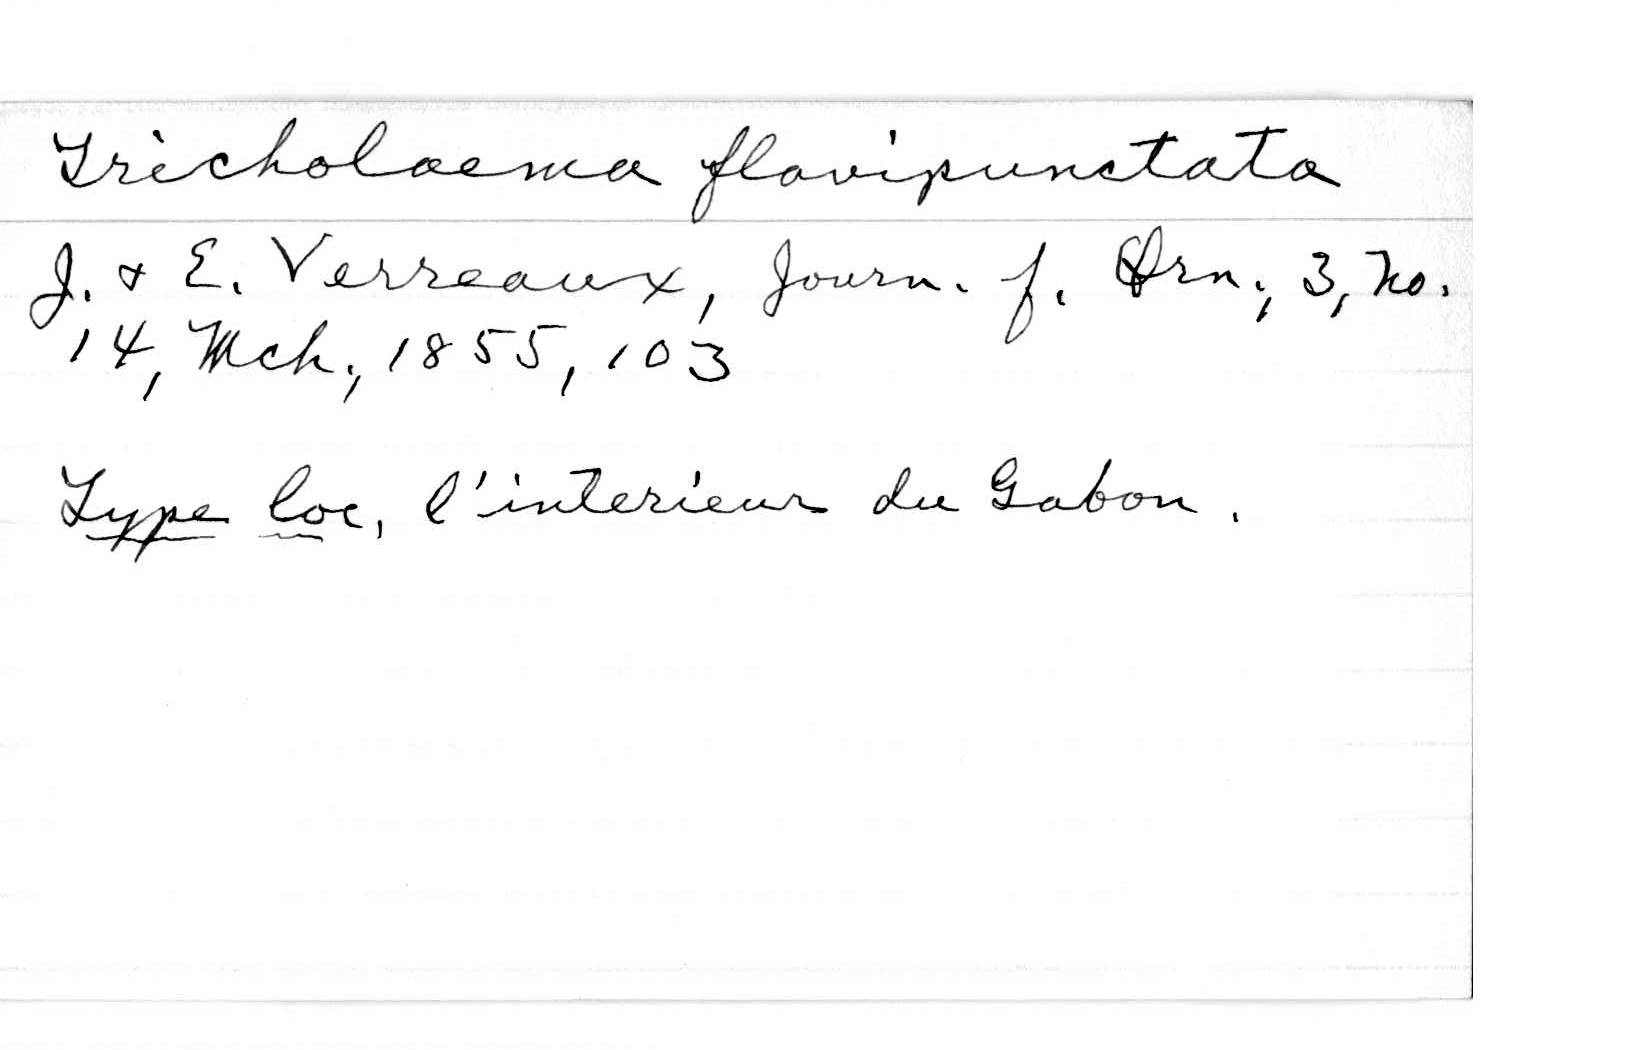 Tricholaema flavipunctata
J. & E. Verreaux, Journ. f. Orn., 3, no.
14, Mch., 1855, 103
Type loc, l'interieur du Gabon.